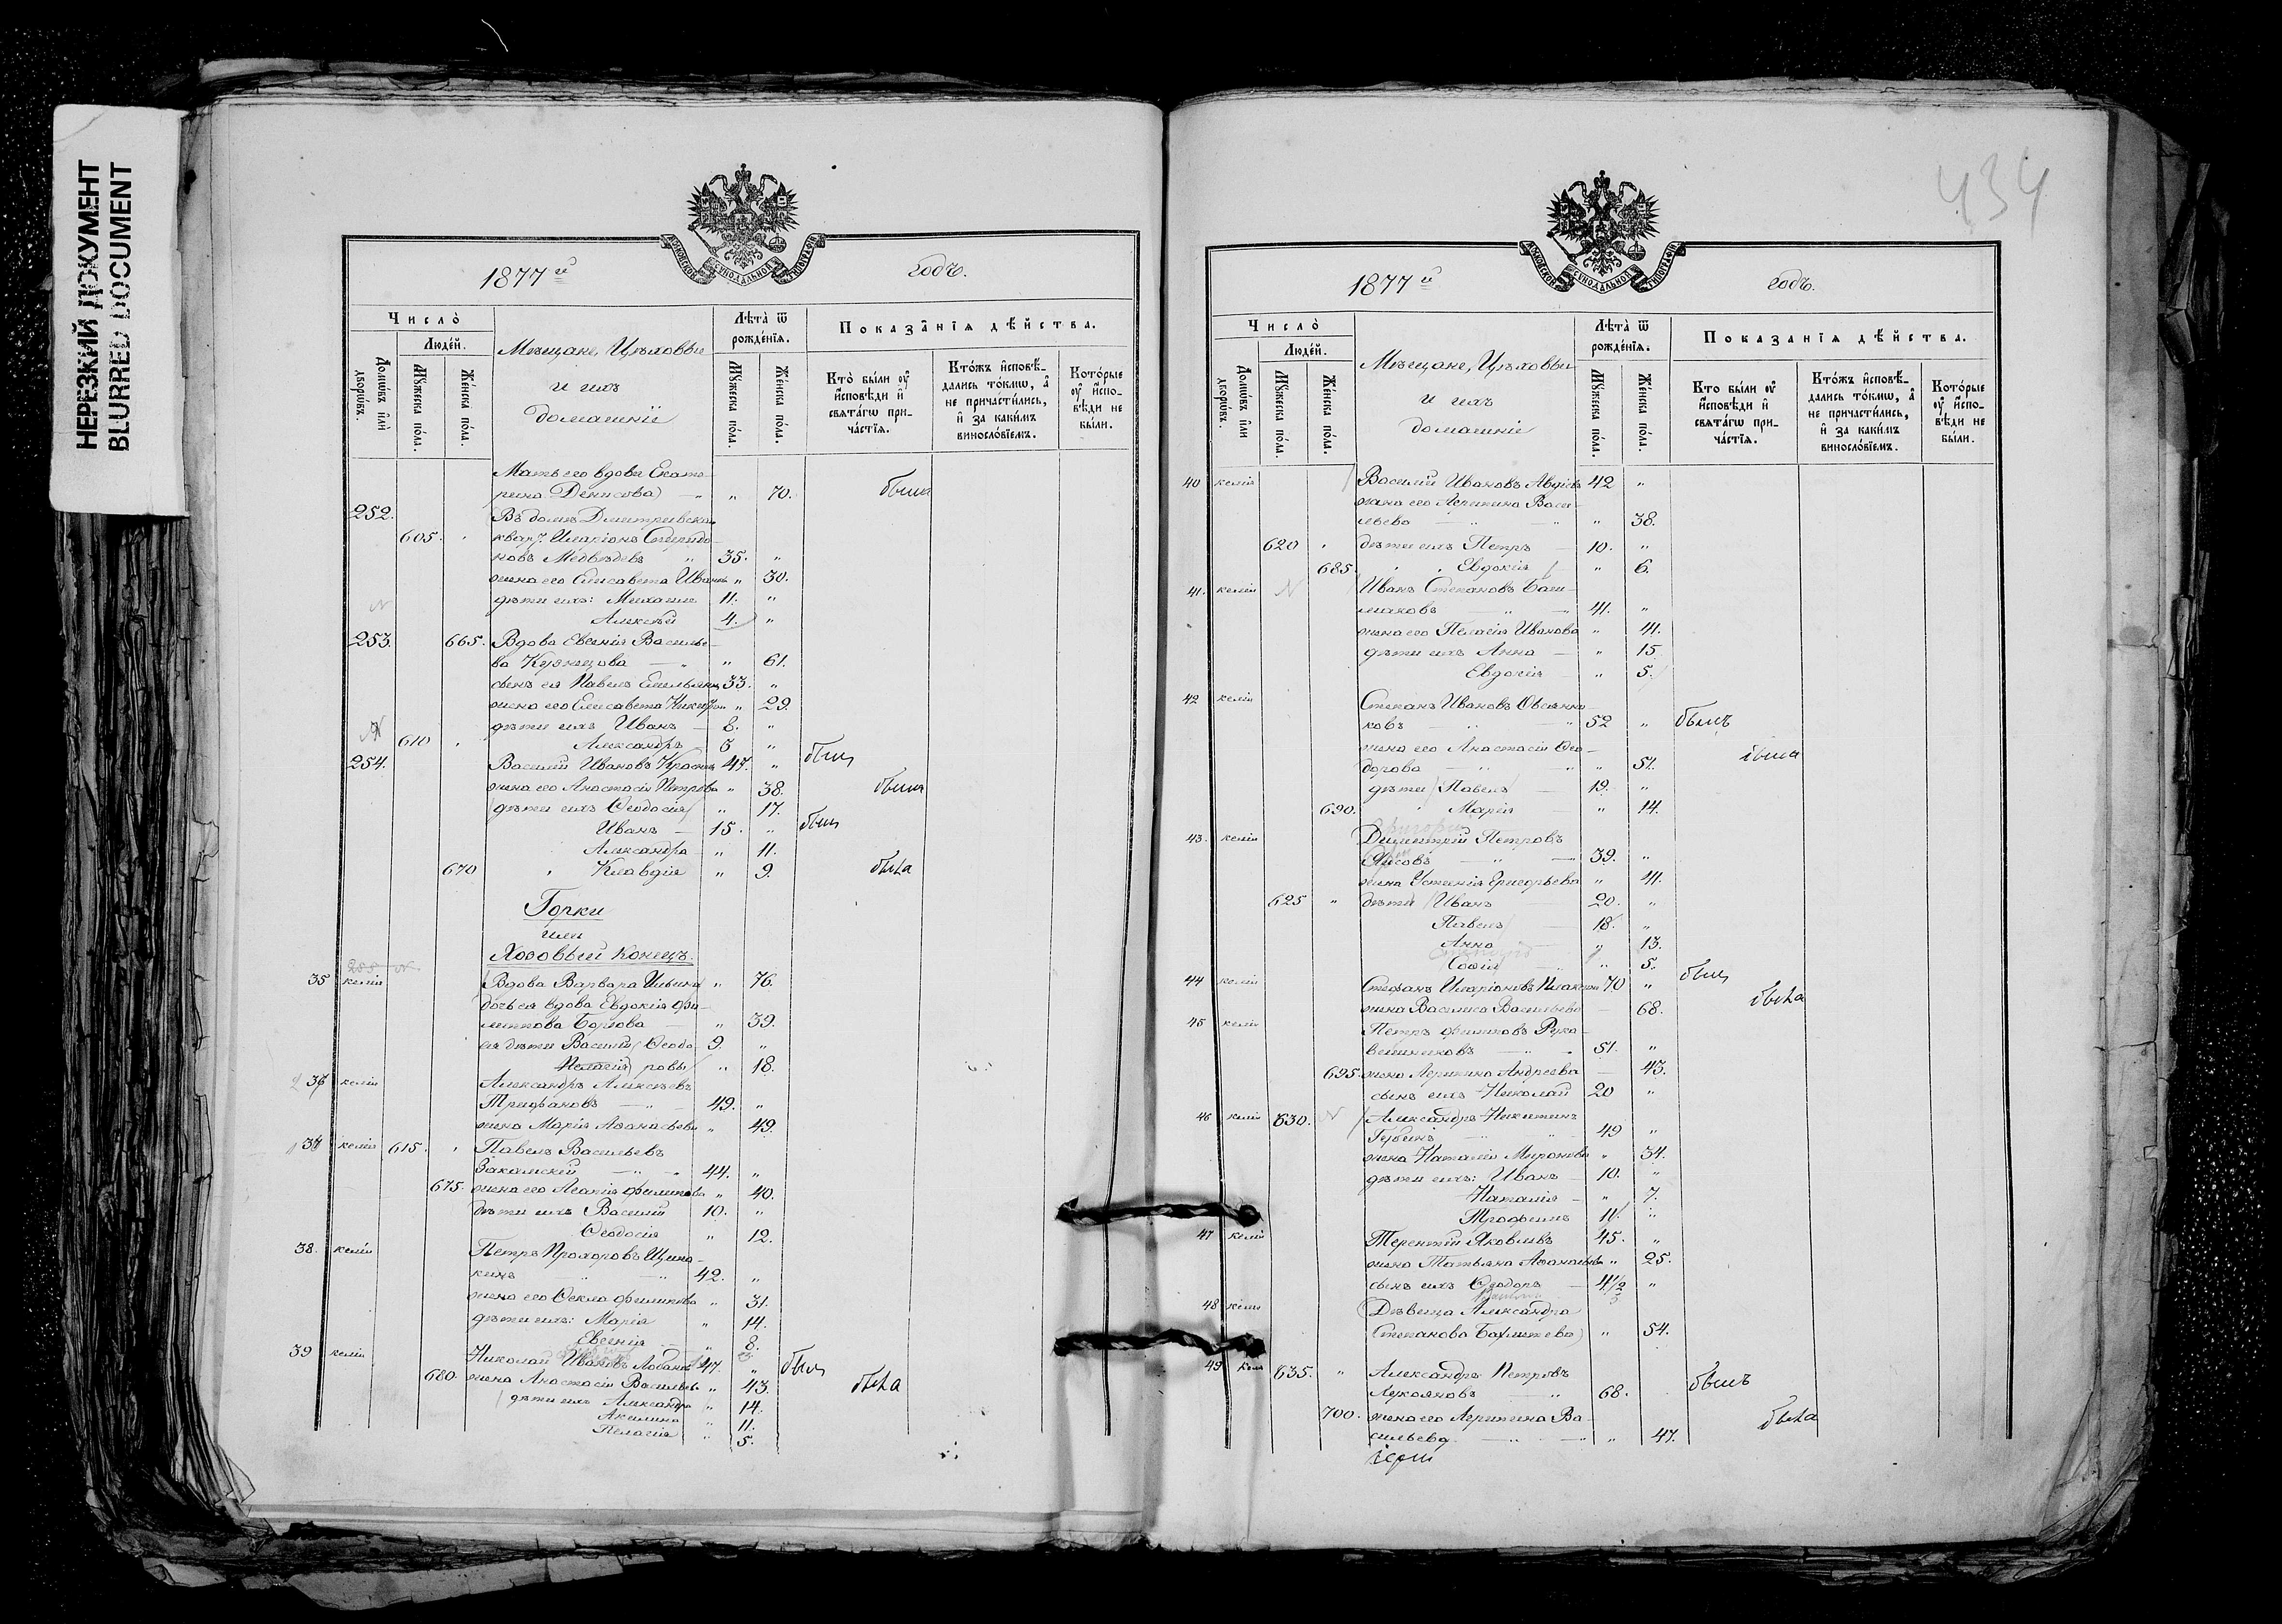 НЕРЕЗКИЙ ДОКУМЕНТ
BLURRED DOCUMENT
МОСКОВСКОЙ СѴНОДАЛЬНОЙ ТИПОГРАФІИ
1877й годъ.
Число̀
Людéй.
Домѡ́въ и҆лѝ дворѡ́въ.
Мꙋ́жеска по́ла.
Же́нска по́ла.
Мѣщане, Цѣховые
и ихъ
домашніе
Лѣта̀ ѿ рожде́нїѧ.
Мꙋ́жеска по́ла.
Же́нска по́ла.
Показа̑нїѧ дѣ́йства.
Кто̀ бы́ли ᲂу҆ и҆сповѣ́ди и҆ свѧта́гѡ при-
ча́стїѧ.
Кто́жъ и҆сповѣ́-
дались то́кмѡ, а҆
не причасти́лись,
и҆ за каки́мъ
винослό́вїемъ.
Кото́рые
ᲂу҆ и҆спо-
вѣ́ди не
бы́ли.
Мать его вдова Екате-
рина Денисова) — „ „ 70. была
252. Въ домѣ Дмитриевска
605. кварт. Иларіонъ Спиридо-
новъ Медвѣдевъ „ 35. „
жена его Елисавета Иванов „ 30.
дѣти ихъ: Михаилъ 11. „
Алексѣй 4. „
253. 665. Вдова Евгенія Василье-
ва Кузнецова — „ „ 61.
сынъ ея Павелъ Емельянов 33. „
жена его Елисавета Никифор „ 29.
дѣти ихъ Иванъ 8. „
610 „ Александръ 5 „
254. Василій Ивановъ 47. „ былъ
жена его Анастасія Петрова „ 38. была
дѣти ихъ Ѳеодосія „ 17.
Иванъ — 15. „ былъ
Александра — „ 11.
670 „ Клавдія „ 9. была
Горки
или
Хозовый конецъ.
255
35 келія Вдова Варвара Ильина „ 76.
дочь ея вдова Евдокія Фи-
липпова — „ 39.
ея дѣти Василій Ѳеодо 9. „
Пелагія) ровы „ 18.
36 келія Александръ Алексѣевъ
Трифановъ — „ — 49. „
жена Марія Аѳанасьева „ 49.
37 келія 615. „ Павелъ Васильевъ
Закамскій — „ 44. „
675. жена его Агапія Филипова „ 40.
дѣти ихъ Василій 10. „
Ѳеодосія „ 12.
38. келія Петръ Прохоровъ Щина-
кинъ — „ — „ 42. „
жена его Ѳекла Филипова „ 31.
дѣти ихъ: Марія „ 14.
Евгенія „ 8.
39 келія Николай Ивановъ Лобановъ 47. „ былъ
680. жена Анастасія Васильев „ 43. была
дѣти ихъ Александра „ 14.
Акилина „ 11.
Пелагія „ 5.
434
МОСКОВСКОЙ СѴНОДАЛЬНОЙ ТИПОГРАФІИ
1877й годъ.
Число̀
Людéй.
Домѡ́въ и҆лѝ дворѡ́въ.
Мꙋ́жеска по́ла.
Же́нска по́ла.
Мѣщане, Цѣховые
и ихъ
домашніе
Лѣта̀ ѿ рожде́нїѧ.
Мꙋ́жеска по́ла.
Же́нска по́ла.
Показа́нїѧ дѣ́йства.
Кто бы́ли ᲂу҆ и҆сповѣ́ди и҆ свѧта́гѡ при-
ча́стїѧ.
Кто́жъ и҆сповѣ́-
дались то́кмѡ, а҆
не причасти́лись,
и҆ за каки́мъ
винослό́вїемъ.
Кото́рые
ᲂу҆ и҆спо-
вѣ́ди не
бы́ли.
40 келія Василій Ивановъ Авдѣевъ 42 „
жена его Агрипина Васи-
льева — „ — „ „ 38.
620 „ дѣти ихъ Петръ — 10. „
685. „ „ Евдокія „ 6.
41. келія Иванъ Степановъ Баш-
маковъ — „ — „ 41. „
жена его Пелагія Иванова „ 41.
дѣти ихъ Анна — „ 15
Евдокія „ 5.
42 келія Степанъ Ивановъ Овсянни-
ковъ — „ — „ 52 „ былъ
жена его Анастасія Ѳео-
дорова — „ — „ „ 51. была
дѣти Павелъ — 19. „
690. „ Марія — „ 14.
Григорій
43. келія Димитрій Петровъ
— „ — 39. „
жена Устинія Григорьева „ 41.
625 „ дѣти Иванъ 20. „
Павелъ — 18. „
Анна „ 13.
Софія „ 5.
44 келія Стефанъ Иларіоновъ 70 „ былъ
жена Василиса Васильева — 68. была
45 келія Петръ Филиповъ Рука-
вишниковъ — „ 51. „
695. жена Агрипина Андреева — 43.
сынъ ихъ Николай 20 „
46 келія 630. Александръ Никитинъ
Гербинъ — „ — „ 49 „
жена Наталія Миронова „ 34.
дѣти ихъ: Иванъ — 10. „
Наталія — „ 7.
Трофимъ 11. „
47 келія Терентій Яковлевъ 45. „
жена Татьяна Аѳанасьева „ 25.
сынъ ихъ Ѳеодоръ — 4½ „
48 келія Дѣвица Александра
Степанова Бахметева) „ 54.
49 келія 635. „ Александръ Петровъ
Лукояновъ — „ 68. былъ
700. жена его Агрипина Ва-
сильева — „ — „ „ 47. была
іерей